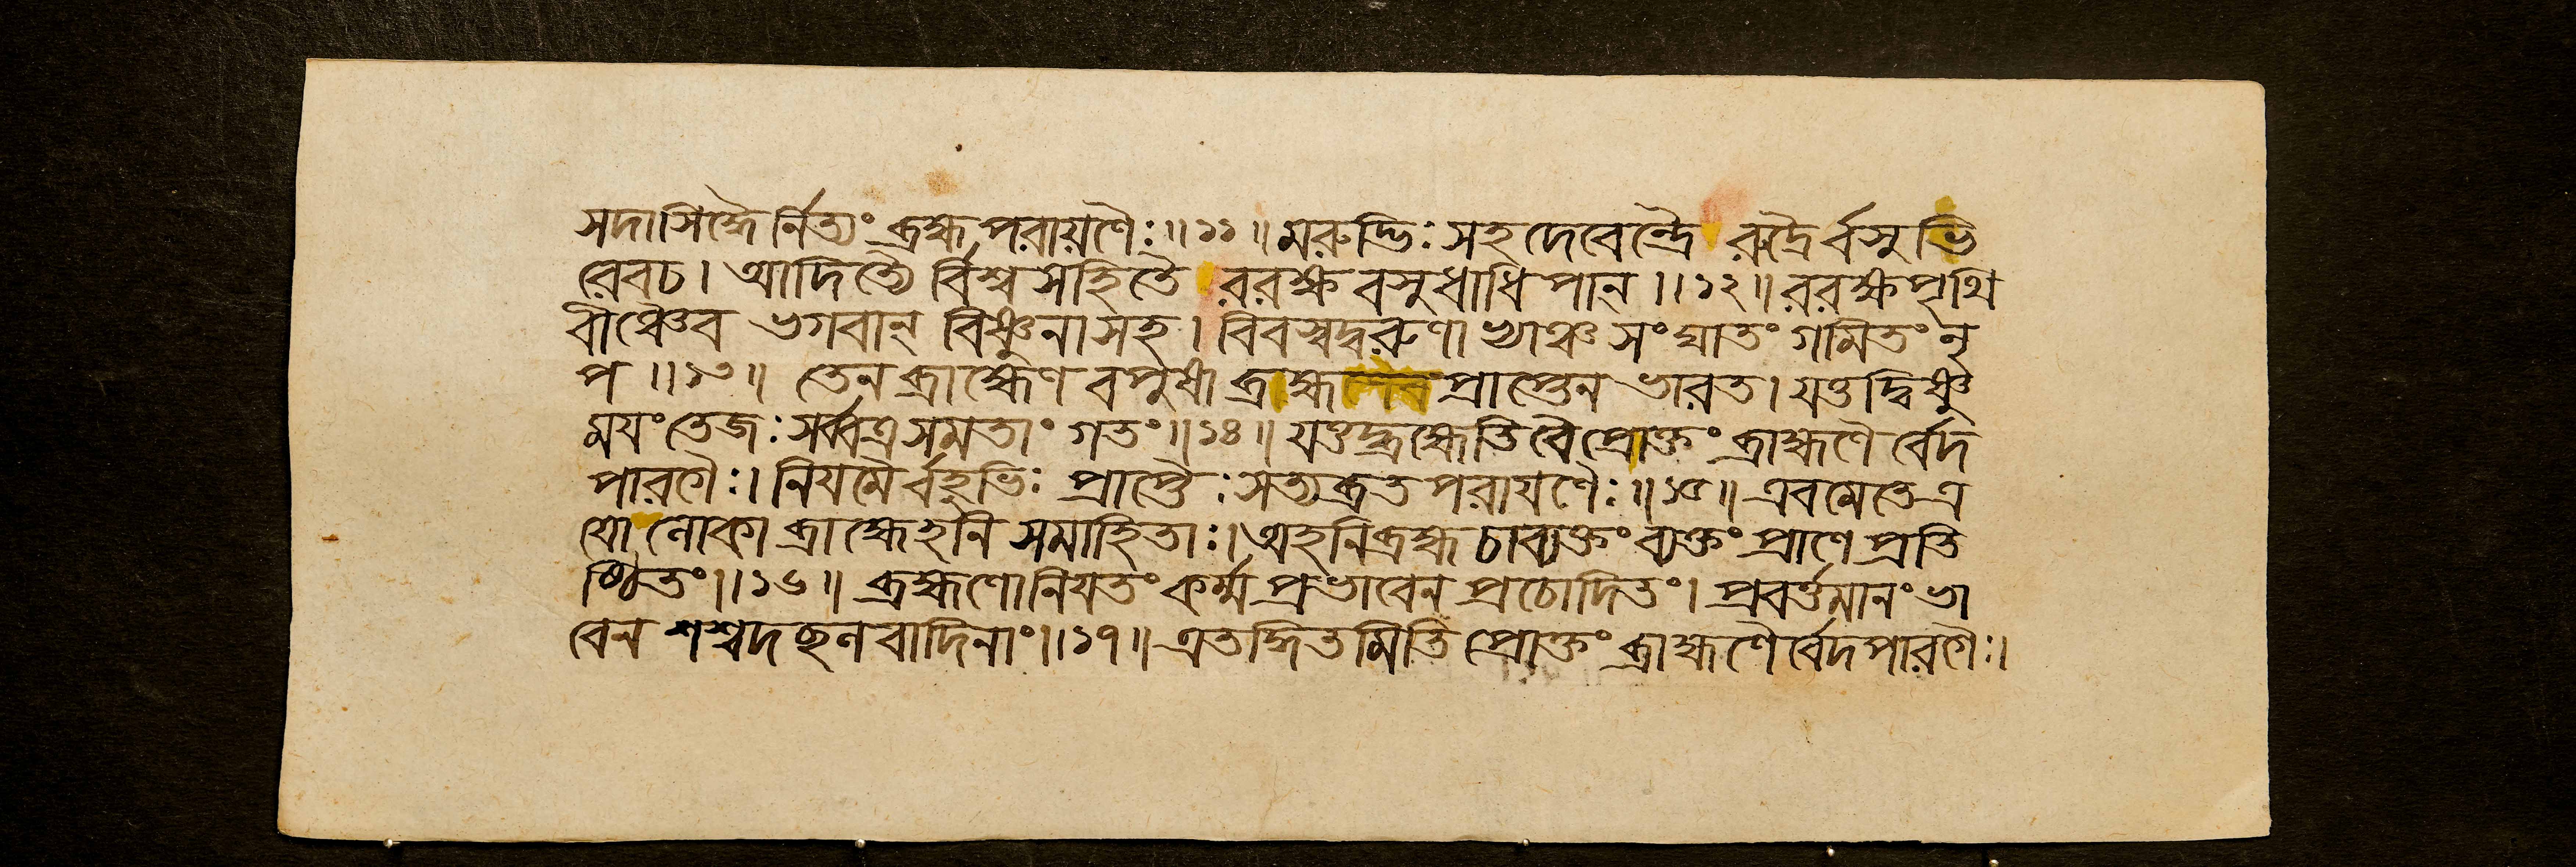 সদাসিদ্ধৈর্নিত্যং ব্রহ্মপরায়ণৈঃ॥১১॥মরুদ্ভিঃসহদেবেন্দ্রৈ রুদ্রৈর্বসুভি
রেবচ। আদিত্যৈর্বিশ্বসহিতৈ ররক্ষ বসুধাধিপান্॥১২॥ররক্ষপৃথি
বীঞ্চৈব ভগবান্ বিষ্ণুনাসহ। বিবস্বদ্বরুণা খ্যঞ্চ সংঘাতং গমিতং নৃ
প॥১৩॥ তেন ব্রাহ্মেণ বপুষা ব্রাহ্ম প্রাপ্তেন ভারত। যত্তদ্বিষ্ণু
ময়ং তেজঃসর্ব্বত্রসমতাং গতং॥১৪॥যত্তদ্ব্রহ্মেতি বৈ প্রোক্তং ব্রাহ্মণৈর্বেদ
পারগৈঃ। নিয়মৈর্বহুভিঃ প্রাপ্তৈঃসত্যব্রতপরায়ণৈঃ॥১৫॥এবমেতেত্র
য়ো লোকা ব্রাহ্মেহনি সমাহিতাঃ।অহনিব্রহ্ম চাব্যক্তং ব্যক্তং প্রাণে প্রতি
ষ্ঠিতং॥১৬॥ ব্রহ্মণোনিয়তং কর্ম্ম প্রভাবেন প্রচোদিতং। প্রবর্ত্তমানং ভা
বেন শশ্বদছলবাদিনাং॥১৭॥এতদ্ধিতমিতি প্রোক্তং ব্রাহ্মণৈর্বেদপারগৈঃ।